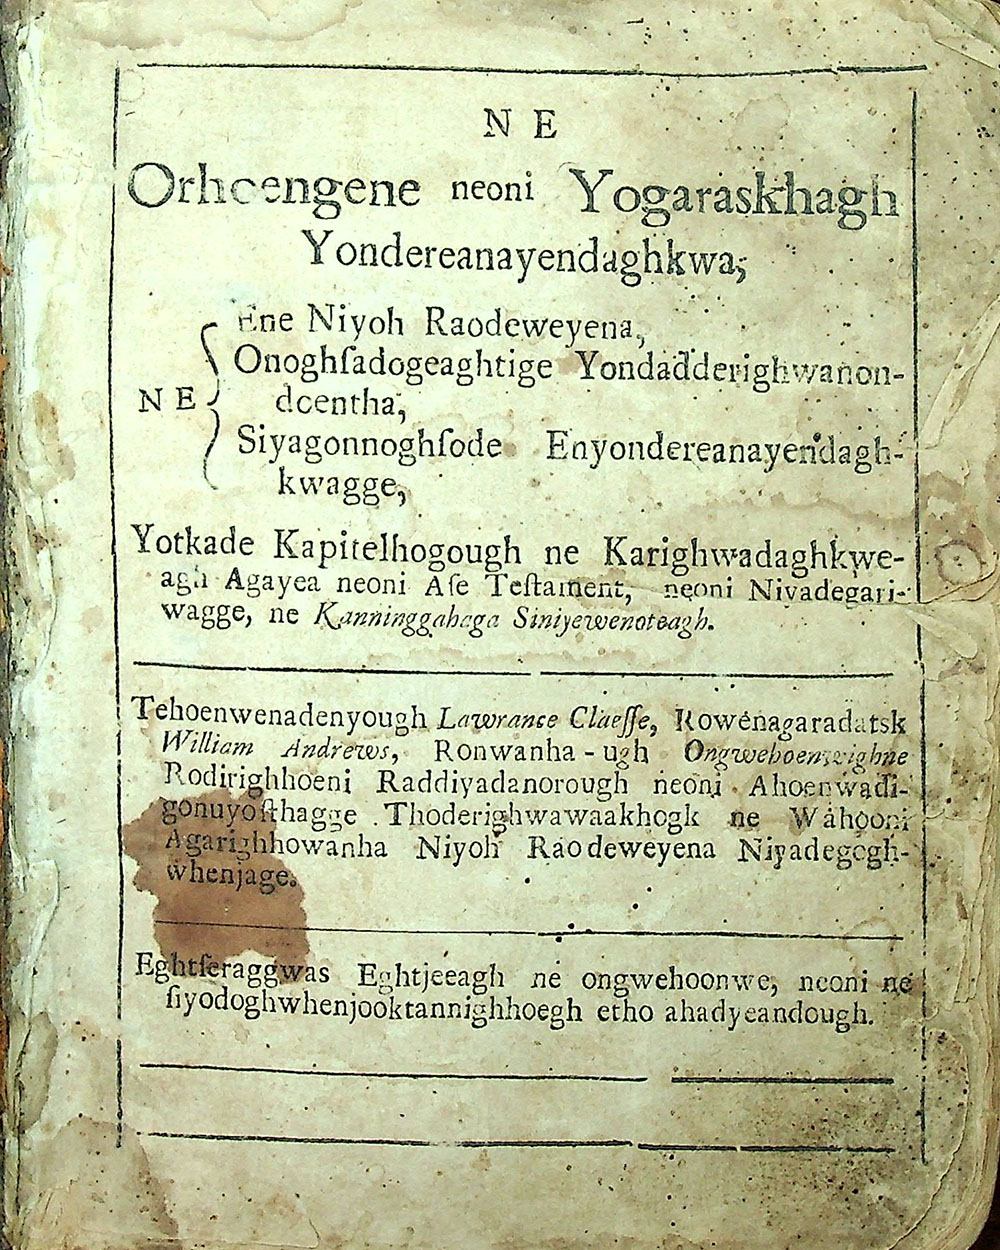 N E
Orhoengene neoni Yogaraskhagh
Yondereanayendaghkwa,
Ene Niyoh Raodeweyena,
Onoghſadogeaghtige Yondadderighwanon-
N E
doentha,
Siyagonnoghſode Enyondereanayendagh-
kwagge,
Yotkade Kapitelhogough ne Karighwadaghkwe-
agh Agayea neoni Aſe Teſtament, neoni Niyadegari-
wagge, ne Kanninggahaga Siniyewenoteagh.
Tehoenwenadenyough Lawrance Claeſſe, Rowenagaradatsk
William Andrews, Ronwanha-ugh Ongwehoenwighne
Rodirighhoeni Raddiyadanorough neoni Ahoenwadi-
gonuyoſthagge Thoderighwawaakhogk ne Wahooni
Agarighhowanha Niyoh Raodeweyena Niyadegogh-
whenjage.
Eghtſeraggwas Eghtjeeagh ne ongwehoonwe, neoni ne
ſiyodoghwhenjooktannighhoegh etho ahadyeandough.